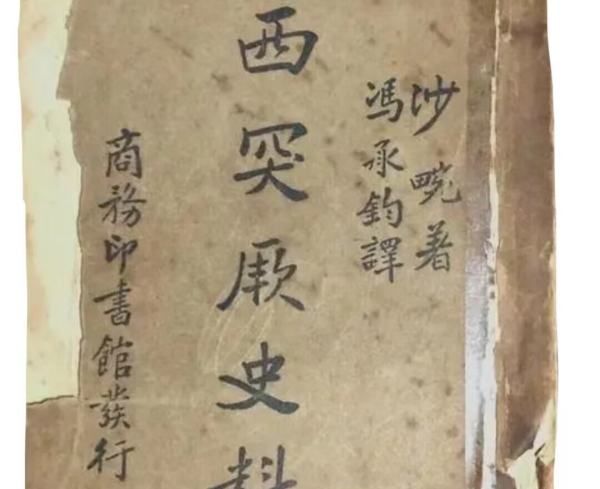 沙畹著
馮承鈞譯
西突厥史料
商務印書館發行